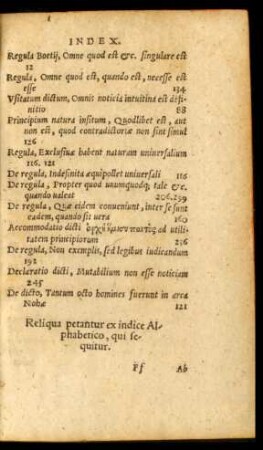 INDEX.
Regula Boetij, Omne quod est &c. singulare est
12
Regula, Omne quod est, quando est, necesse est
esse 134
Vsitatum dictum, Omnis noticia intuitiua est defi-
nitio 88
Principium natura insitum, Quodlibet est, aut
non est, quod contradictoriæ non sint simul
126
Regula, Exclusiuæ habent naturam uniuersalium
116. 121
De regula, Indefinita æquipollet uniuersali 116
De regula, Propter quod unumquodq; tale &c.
quando ualeat 206.259
De regula, Quæ eidem conueniunt, inter se sunt
eadem, quando sit uera 160
Accommodatio dicti ad utili-
tatem principiorum 256
De regula, Non exemplis, sed legibus iudicandum
192
Declaratio dicti, Mutabilium non esse noticiam
245
De dicto, Tantum octo homines fuerunt in arca
Nohæ 121
Reliqua petantur ex indice Al-
phabetico, qui se-
quitur.
Ff Ab